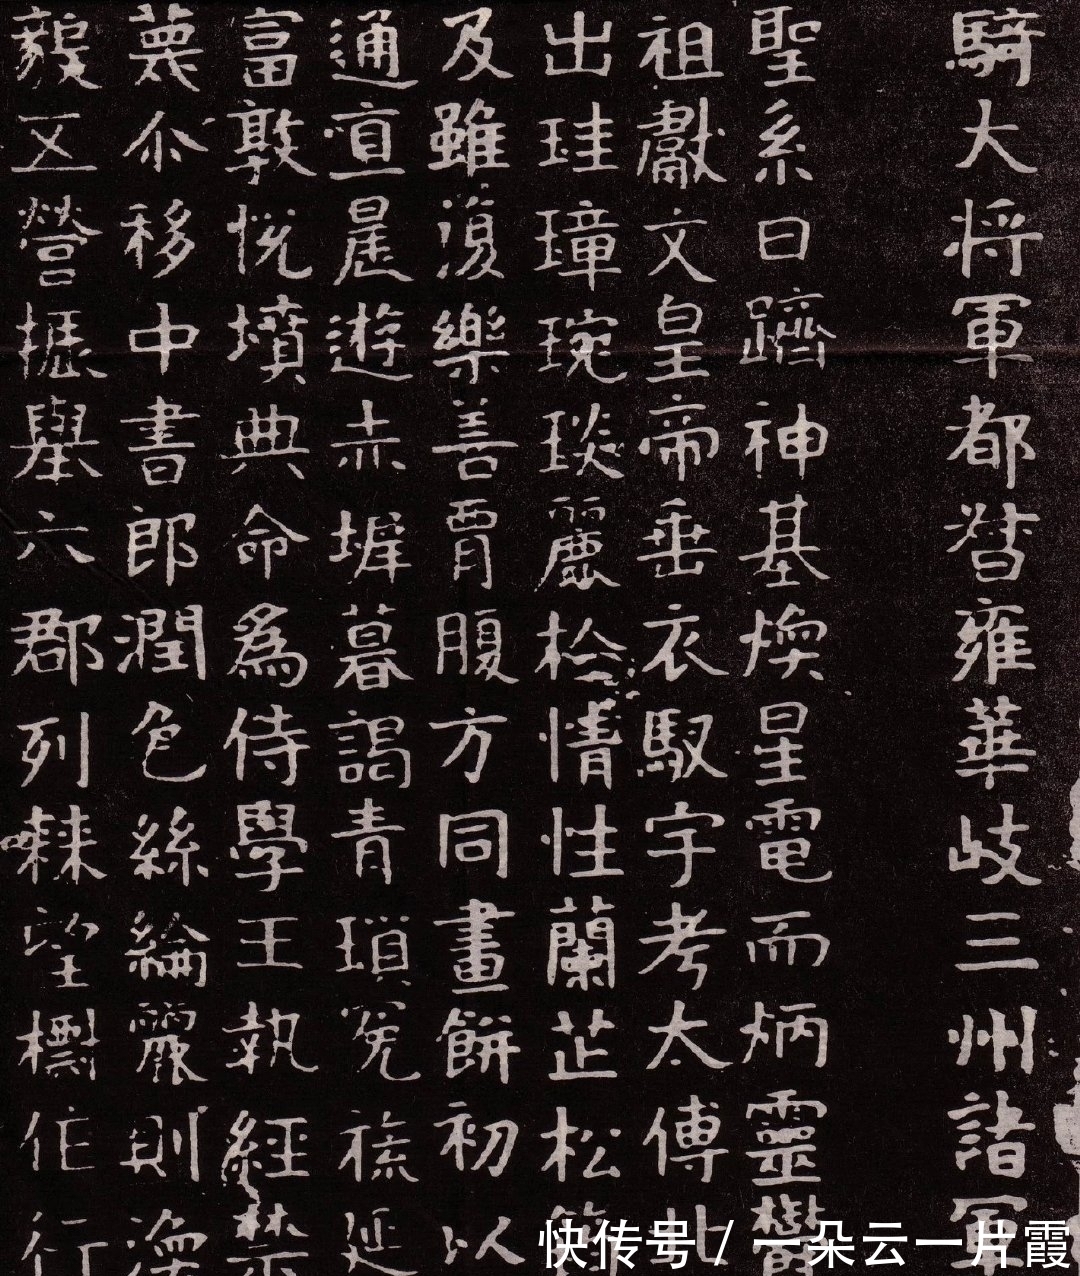 騎大将軍都督雍華岐三州諸軍
聖系曰躋神基煥星電而炳靈欝
祖獻文皇帝垂衣馭宇考太傅北
出珪璋琬琰麗於情性蘭芷松
及雖復樂善腹方同畫餅初以
通直晨遊赤墀暮謁青瑣冕旒延
富敦悅墳典命爲侍學王執經禁
尒移中書郎潤色絲綸麗則渙
五營振舉六郡列棘望作行
快传号 / 一朵云一片霞